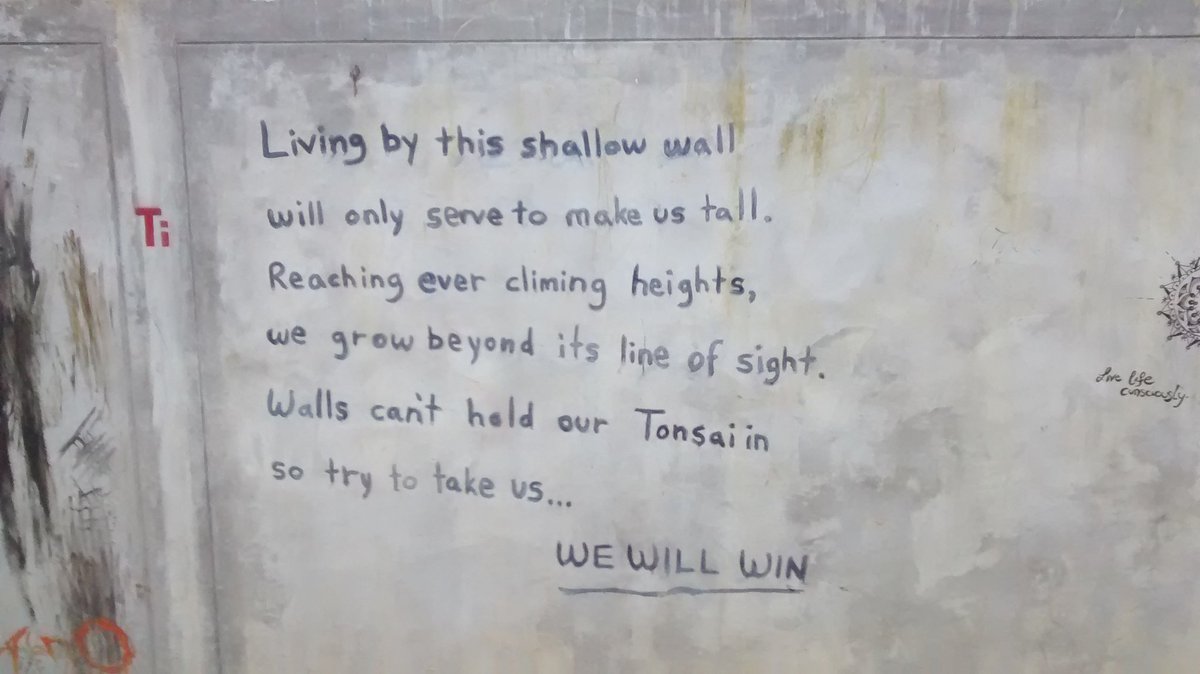 Living by this shallow wall
will only serve to make us tall.
Ti
Reaching ever climing heights,
we grow beyond its line of sight.
Live life
consciously.
Walls can't hold our Tonsai in
so try to take us...
WE WILL WIN